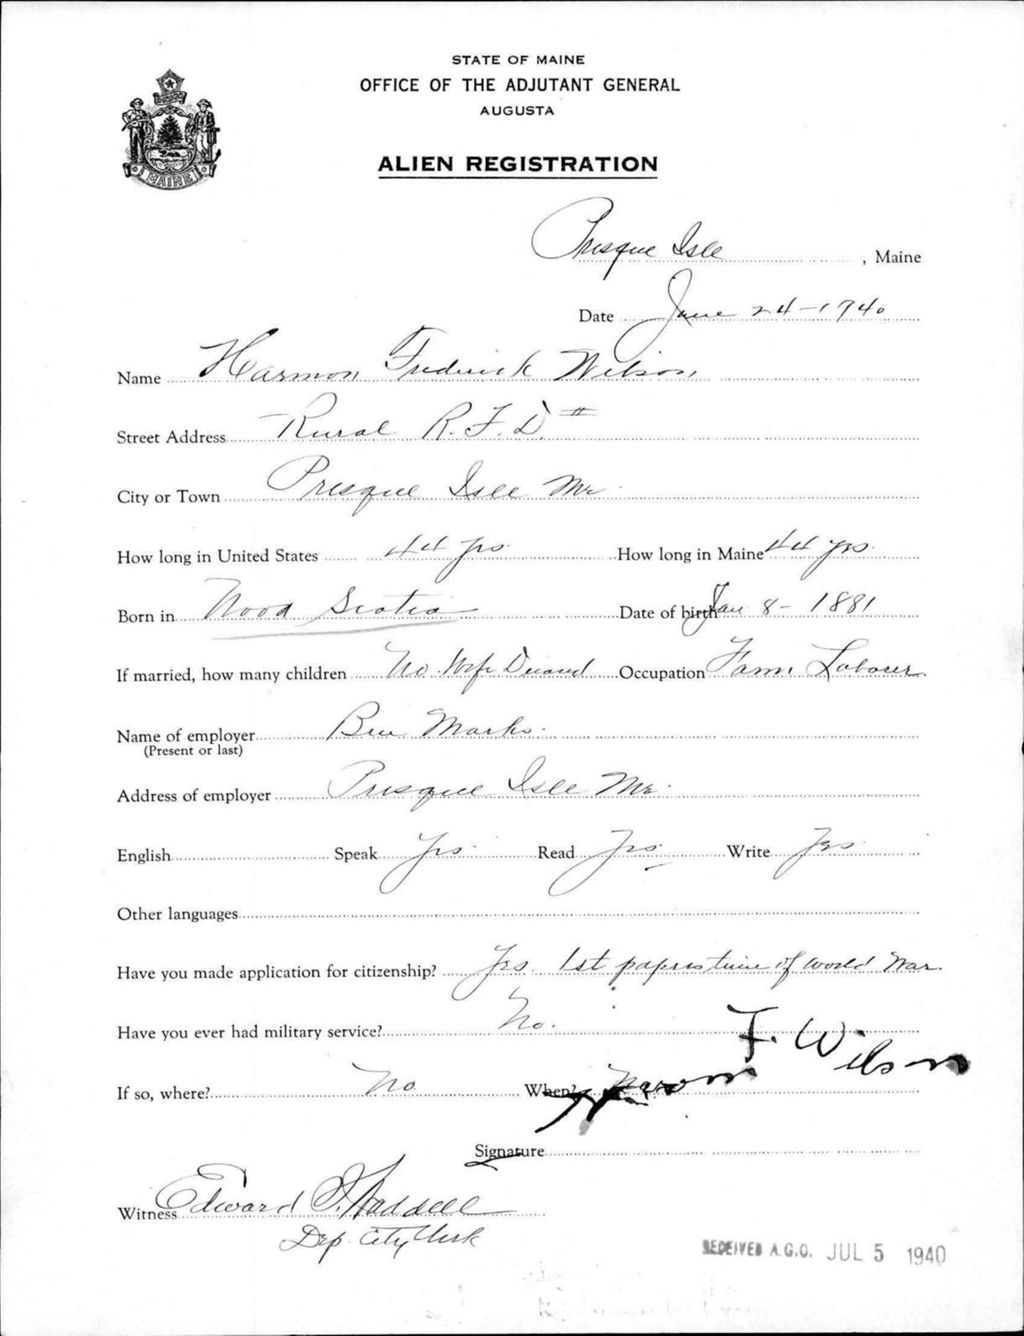 STATE OF MAINE
OFFICE OF THE ADJUTANT GENERAL
AUGUSTA
ALIEN REGISTRATION
MAINE
Presque Isle, Maine
Date June 24-1940
Name Harmon Frederick Wilson
Street Address Rural R.F.D. #
City or Town Presque Isle Me.
How long in United States 44 yrs How long in Maine 44 yrs.
Born in Nova Scotia Date of birth Jan 8-1881
If married, how many children No. Wife Occupation Farm Laborer
Name of employer Ben Marks.
(Present or last)
Address of employer Presque Isle Me.
English Speak Yes Read Yes Write Yes
Other languages
Have you made application for citizenship? Yes. 1st papers time of World War.
Have you ever had military service? No.
If so, where? No When?
Harmon F. Wilson
Signature
Witness Edward Waddell
Dep. City Clerk
RECEIVED A.G.O. JUL 5 1940